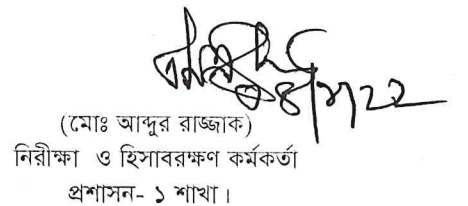 (মোঃ আব্দুর রাজ্জাক)
নিরীক্ষা ও হিসাবরক্ষণ কর্মকর্তা
প্রশাসন- ১ শাখা।